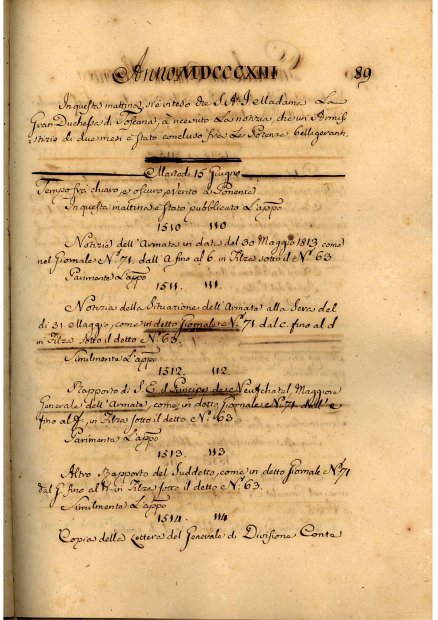 Anno MDCCCXIII 89
In questa mattina si è inteso che S. A. I. Madama La
Gran Duchessa di Toscana, à ricevuto La notizia, che un Armis
tizio di due mesi è stato concluso fra Le Potenze belligeranti.
Martedì 15 Giugno
Tempo fra chiaro, e oscuro, e vento a Ponente
In questa mattina è stato pubblicato L'appo
1510 110
Notizie dell'Armata in data del 30 Maggio 1813 come
nel Giornale No. 71. dall' A fino al b in Filza sotto il No 63
Parimente L'appo
1511. 111.
Notizia della Situazione dell'Armata alla Sera del
dì 31 Maggio, come in detto Giornale No. 71 dal c. fino al d
in Filza sotto il detto No. 63.
Similmente L'appo
1512. 112
Rapporto di S. E. il Principe de Neufchatel, Maggiore
Generale dell'Armata, come in detto Giornale No. 71 dall' e
fino al f, in Filza sotto il detto No. 63.
Parimente L'appo
1513. 113
Altro Rapporto del Suddetto, come in detto Giornale No. 71
dal g. fino al h in Filza sotto il detto No. 63.
Similmente L'appo
1514. 114
Copia della Lettera del Generale di Divisione Conte